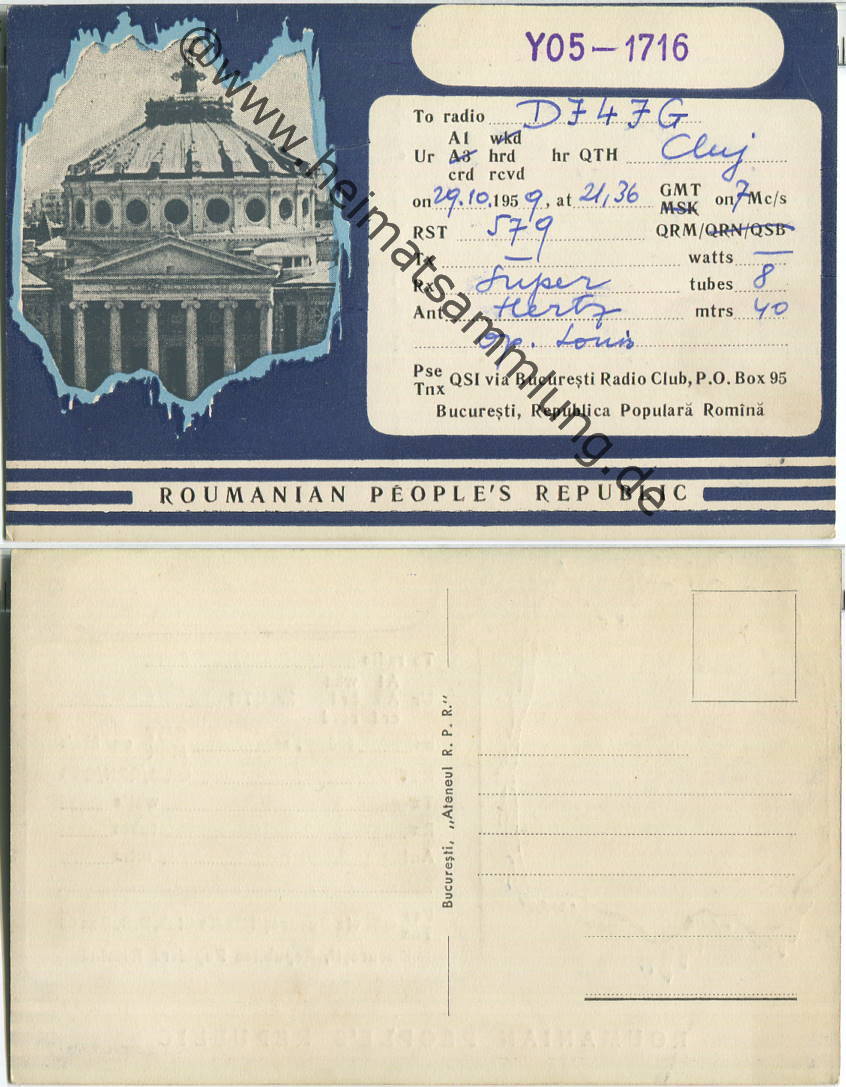 YO5-1716
To radio D747G
A1 wkd
Ur A3 hrd hr QTH Cluj
crd rcvd
on 29.10.1959, at 21,36 GMT MSK on 7 Mc/s
RST 579 QRM/QRN/QSB
Tx — watts —
Rx Super tubes 8
Ant Hertz mtrs 40
op. Louis
Pse
Tnx QSI via București Radio Club, P.O. Box 95
București, Republica Populară Romînă
ROUMANIAN PEOPLE'S REPUBLIC
@www.heimatsammlung.de
București, „Ateneul R. P. R."